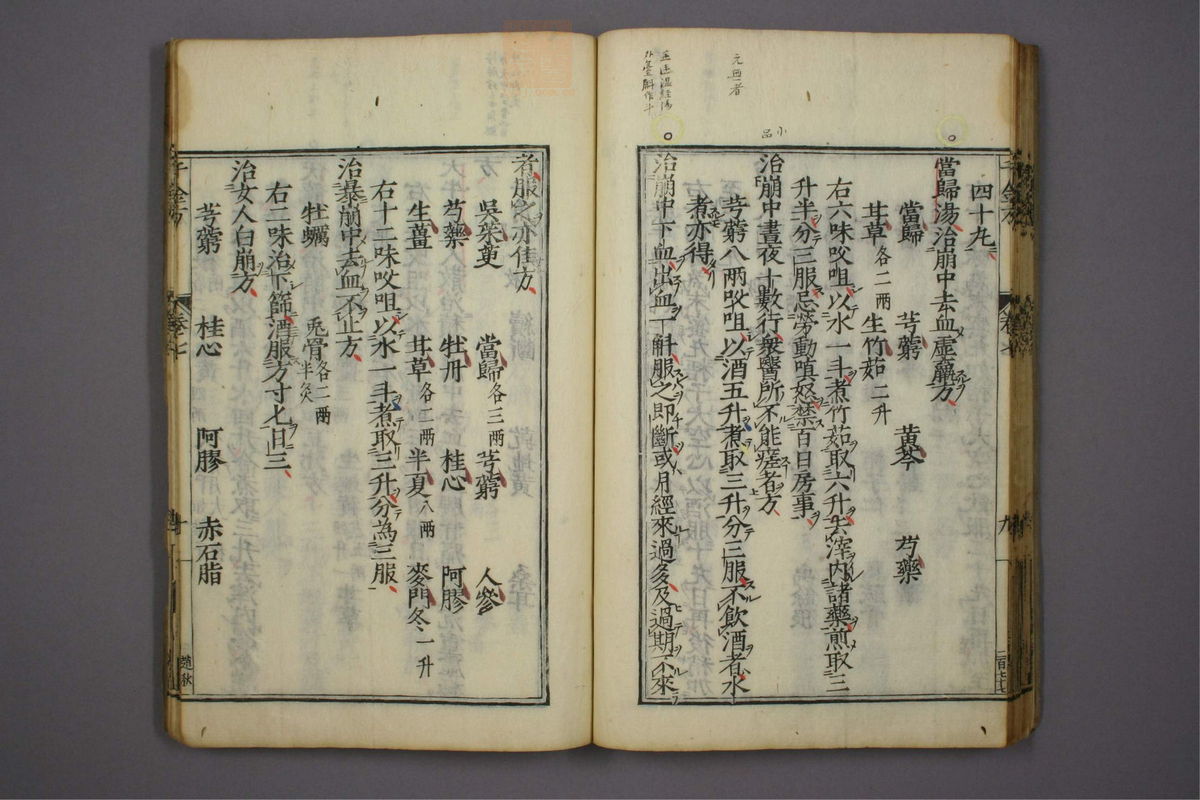 四十九
當歸湯治崩中去血虛羸方
當歸 芎藭 黃芩 芍藥
甘草各二兩 生竹茹二升
右六味㕮咀以水一斗煮竹茹取六升去滓內諸藥煎取三
升半分三服忌勞動嗔怒禁百日房事
小品
治崩中晝夜十數行衆醫所不能瘥者方
芎藭八兩㕮咀以酒五升煮取三升分三服不飲酒者水
煮亦得
治崩中下血出血一斛服之即斷或月經來過多及過期不來
者服之亦佳方
吳茱萸 當歸各三兩 芎藭 人參
芍藥 牡丹 桂心 阿膠
生薑 甘草各二兩 半夏八兩 麥門冬一升
右十二味㕮咀以水一斗煮取三升分為三服
治暴崩中去血不止方
牡蠣 兎骨各二兩半炙
右二味治下篩酒服方寸匕日三
治女人白崩方
芎藭 桂心 阿膠 赤石脂
千金方
卷七
九
千金方
卷七
十
趙秋